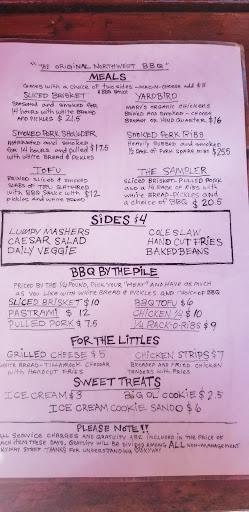 "THE ORIGINAL NORTHWEST BBQ"
MEALS
COMES WITH A CHOICE OF TWO SIDES - MAC-N-CHEESE ADD $
& BBQ SAUCE
SLICED BRISKET
SEASONED AND SMOKED FOR
14 HOURS WITH WHITE BREAD
AND PICKLES $ 21.5
YARDBIRD
MARY'S ORGANIC CHICKENS
BRINED AND SMOKED - CHOOSE
BREAST OR HIND QUARTER $16
SMOKED PORK SHOULDER
MARINATED AND SMOKED
14 HOURS AND PULLED $17.5
WITH WHITE BREAD & PICKLES
SMOKED PORK RIBS
HEAVILY RUBBED AND SMOKED
1/2 RACK OF PORK SPARE RIBS $25.5
TOFU
BRINED SLICED & SMOKED
SLABS OF TOFU SLATHERED
WITH BBQ SAUCE WITH $12
PICKLES AND WHITE BREAD
THE SAMPLER
SLICED BRISKET, PULLED PORK
AND A 1/4 RACK OF RIBS WITH
WHITE BREAD, PICKLES AND
A CHOICE OF BBQ $ 20.5
SIDES $4
LUMPY MASHERS
CAESAR SALAD
DAILY VEGGIE
COLESLAW
HAND CUT FRIES
BAKED BEANS
BBQ BY THE PILE
PRICED BY THE 1/4 POUND, PICK YOUR "MEAT" AND HAVE AS MUCH
AS YOU LIKE WITH WHITE BREAD & PICKLES AND CHOICE BBQ
SLICED BRISKET $10
PASTRAMI $ 12
PULLED PORK $ 7.5
BBQ TOFU $6
CHICKEN 1/4 $10
1/4 RACK-O-RIBS $9
FOR THE LITTLES
GRILLED CHEESE $ 5
WHITE BREAD - TILLAMOOK CHEDDAR
WITH HANDCUT FRIES
CHICKEN STRIPS $7
BREADED AND FRIED CHICKEN
TENDERS WITH FRIES
SWEET TREATS
ICE CREAM $3
BIG OL' COOKIE $2.5
ICE CREAM COOKIE SANDO $6
PLEASE NOTE!!
ALL SERVICE CHARGES AND GRATUITY ARE INCLUDED IN THE PRICE OF
EACH ITEM THESE DAYS. GRATUITY WILL BE DIVIDED AMONG ALL NON-MANAGEMENT
STAFF. THANKS FOR UNDERSTANDING